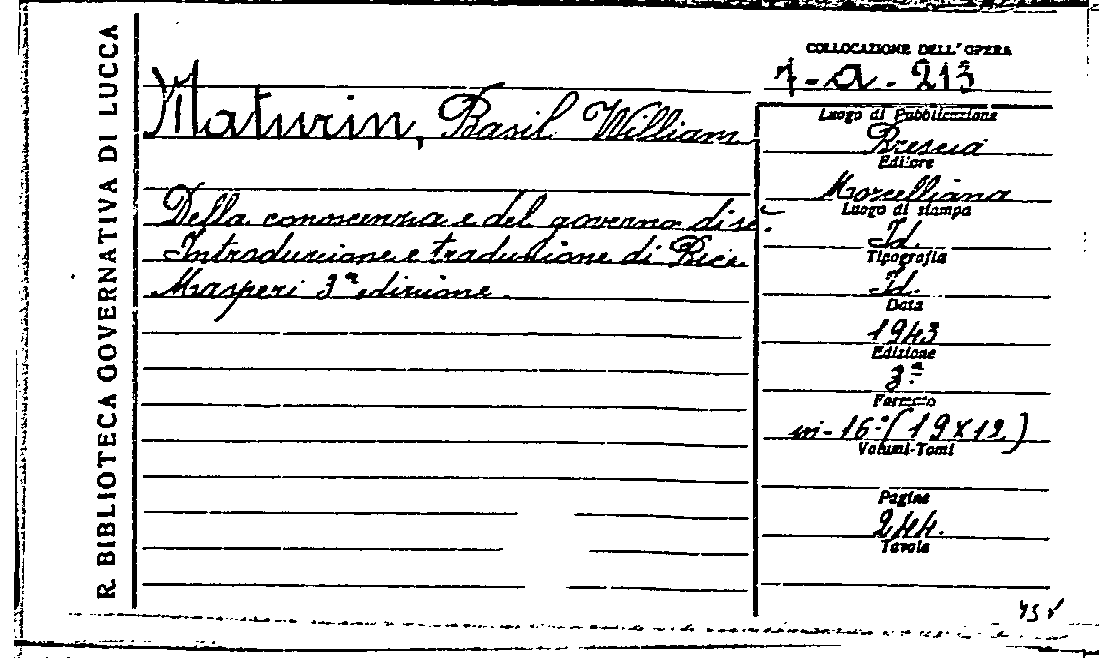 R. BIBLIOTECA GOVERNATIVA DI LUCCA
COLLOCAZIONE DELL'OPERA
7-a-213
Maturin, Basil William
Della conoscenza e del governo di sé.
Introduzione e traduzione di Bice
Masperi 3ª edizione.
Luogo di Pubblicazione
Brescia
Editore
Morcelliana
Luogo di stampa
Id.
Tipografia
Id.
Data
1943
Edizione
3ª
Formato
in-16°(19x12)
Volumi-Tomi
Pagine
244.
Tavole